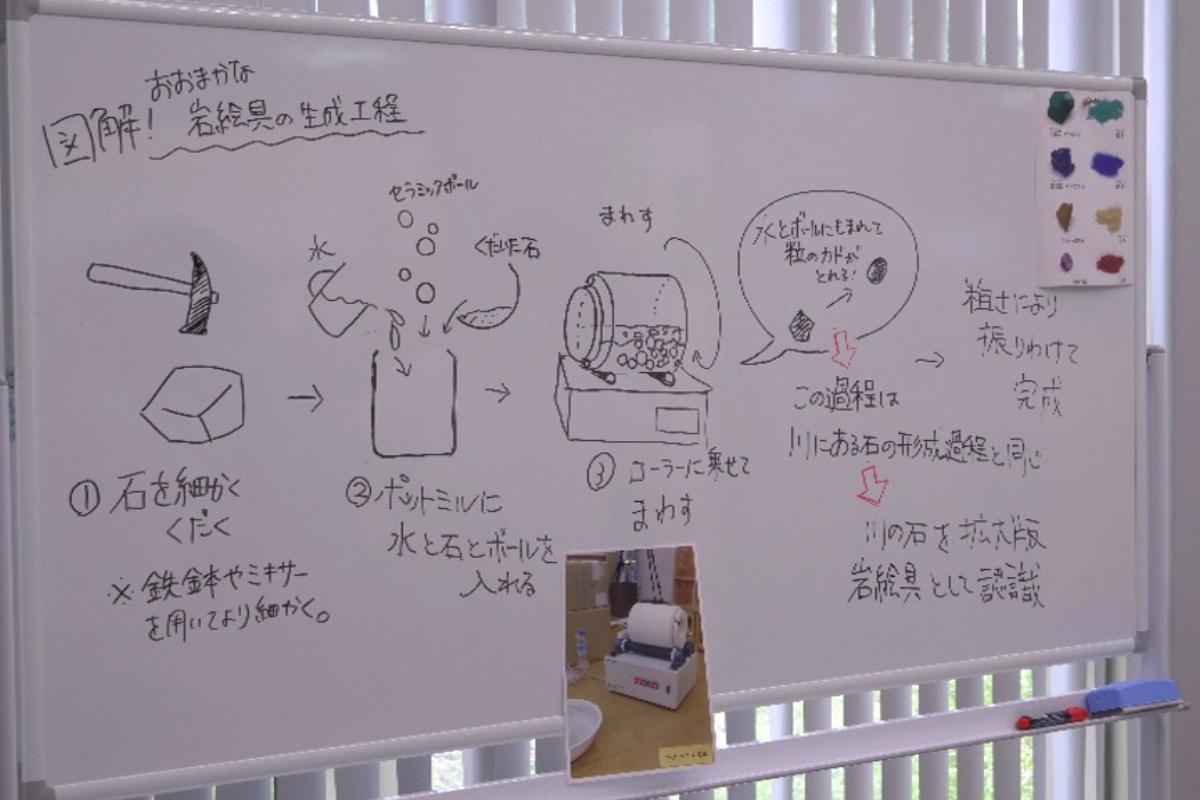 図解! おおまかな
岩絵具の生成工程
セラミックボール
水
くだいた石
まわす
水とボールにもまれて
粒のカドが
とれる!
粗さにより
振りわけて
完成
この過程は
川にある石の形成過程と同じ
川の石を拡大版
岩絵具として認識
① 石を細かく
くだく
※鉄鉢やミキサー
を用いてより細かく。
② ポットミルに
水と石とボールを
入れる
③ ローラーに乗せて
まわす